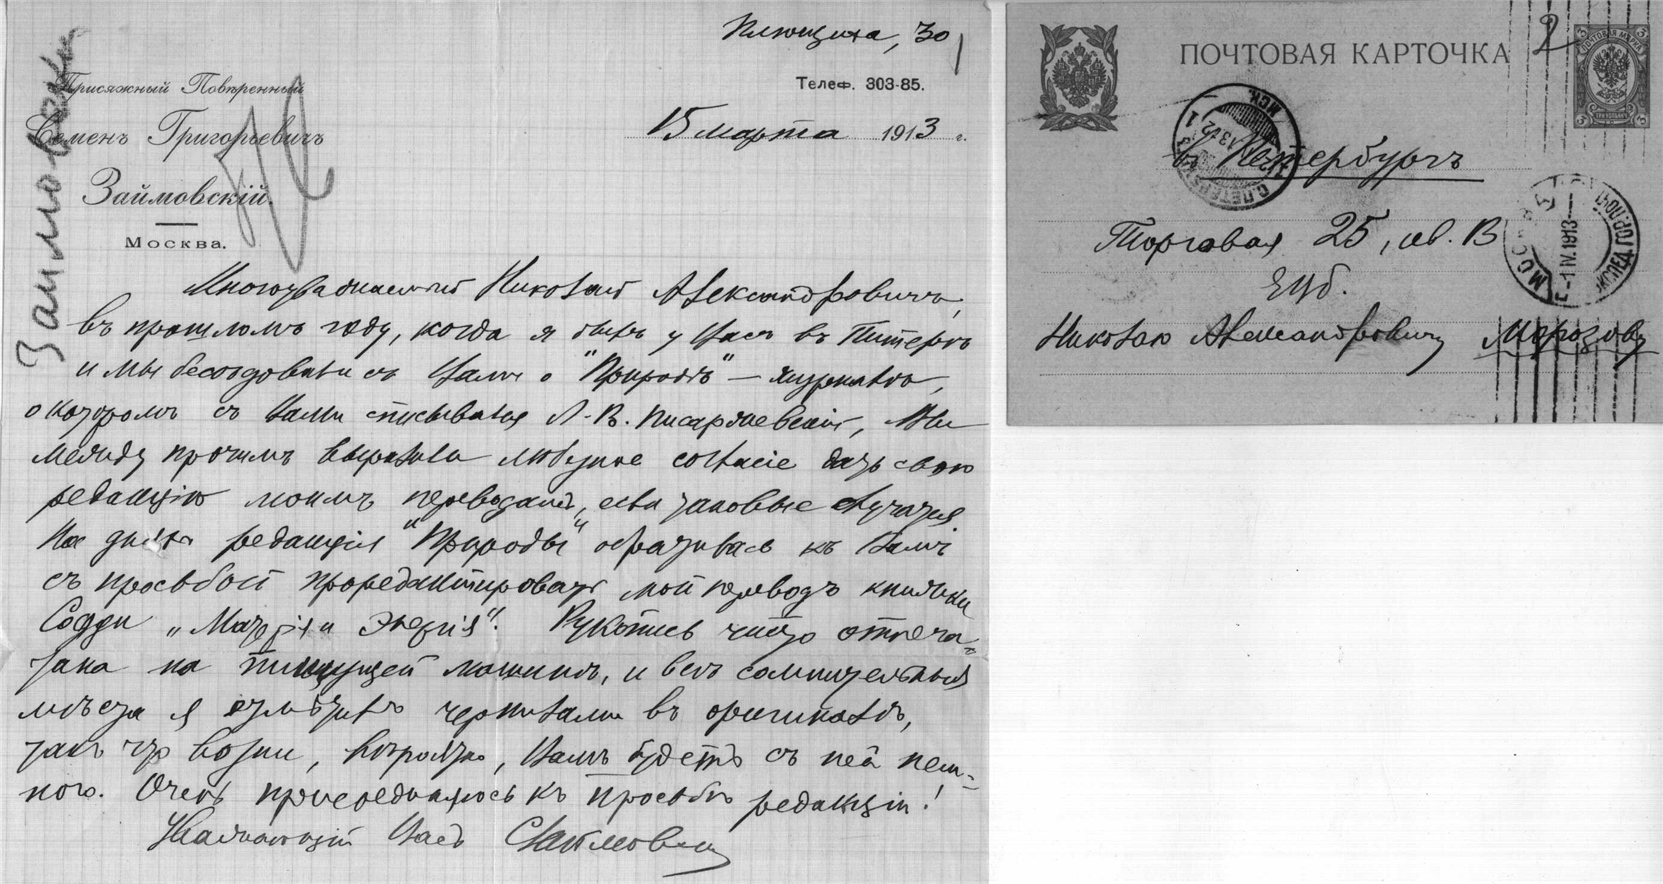 Займовскій
Плющиха, 30
Телеф. 303-85.
15 марта 1913 г.
Присяжный Повѣренный
Семенъ Григорьевичъ
Займовскій.
Москва.
Многоуважаемый Николай Александровичъ,
въ прошломъ году, когда я былъ у Васъ въ Питерѣ
и мы бесѣдовали съ Вами о "Природѣ" — журналѣ,
о которомъ съ Вами списывался Л. В. Писаржевскій, Вы
между прочимъ выразили любезное согласіе дать свою
редакцію моимъ переводамъ, если таковые случатся.
На дняхъ редакція "Природы" обратилась къ Вамъ
съ просьбой проредактировать мой переводъ книжки
Содди „Матерія и Энергія". Рукопись чисто отпеча-
тана на пишущей машинѣ, и всѣ сомнительныя
мѣста я отмѣтилъ чернилами въ оригиналѣ,
такъ что возни, вѣроятно, Вамъ будетъ съ ней нем-
ного. Очень присоединяюсь къ просьбѣ редакціи!
Уважающій Васъ СЗаймовскій
ПОЧТОВАЯ КАРТОЧКА
2
С.ПЕТЕРБУРГЪ
въ Петербургъ
Торговая 25, кв. 13
ЕВБ.
Николаю Александровичу Морозову
МОСКВА
-1 IV 1913
ЭКСПЕД. ГОР. ПОЧТ